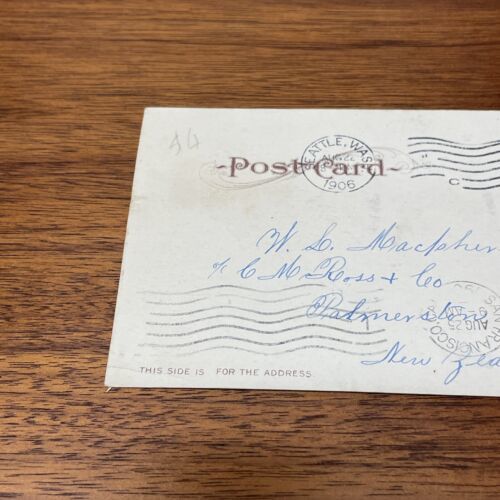 44
SEATTLE, WASH.
AUG 22
1906
-Post Card-
W. L. Macpher
c/o C M Ross & Co
Palmerston
New Zea
SAN FRANCISCO
AUG 25
THIS SIDE IS FOR THE ADDRESS.